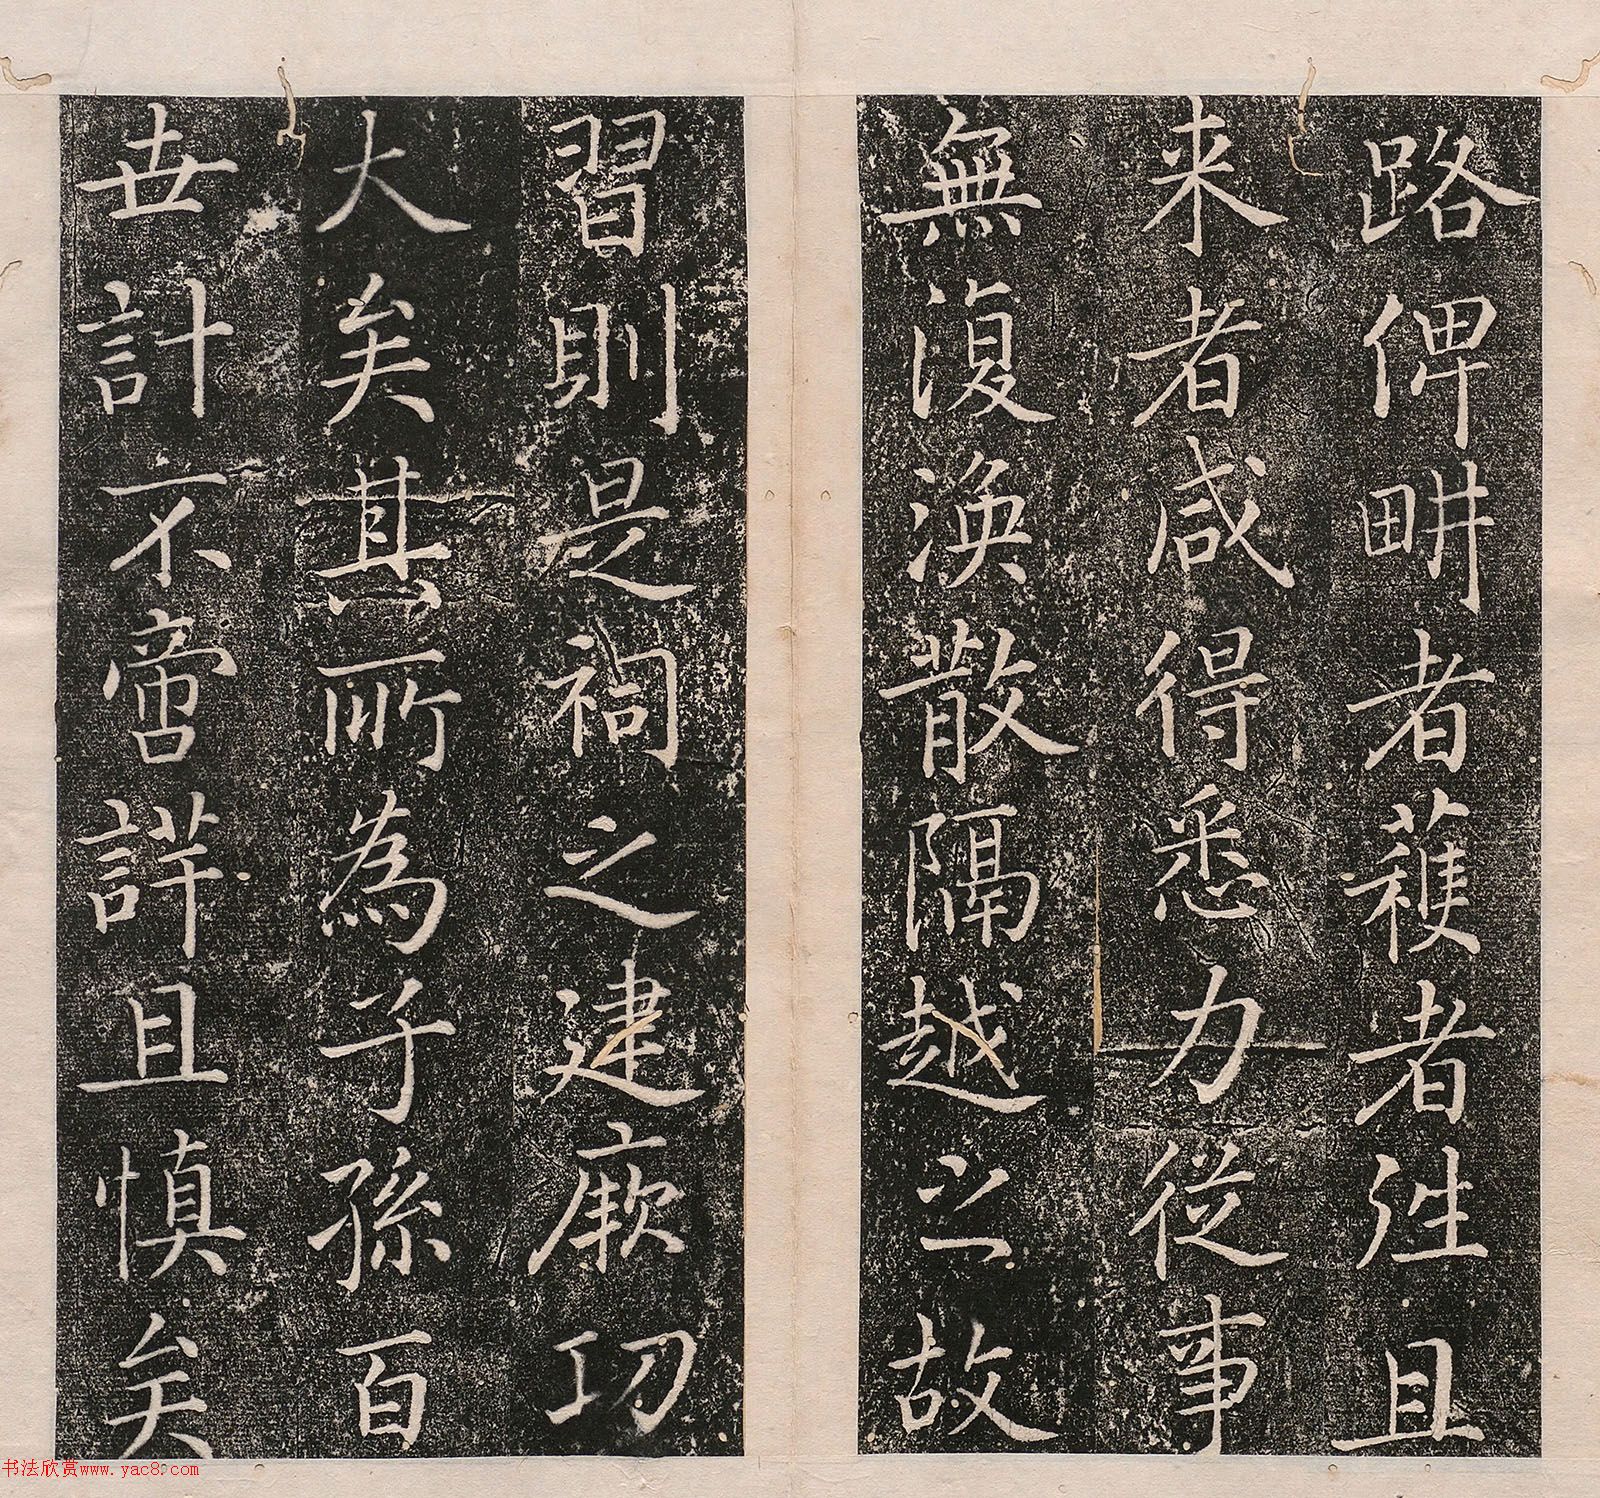 路俾畊者蒦者徃且
来者咸得悉力從事
無復渙散隔越之故
習則是祠之建厥功
大矣其所為子孫百
世計不啻詳且慎矣
书法欣赏www.yac8.com